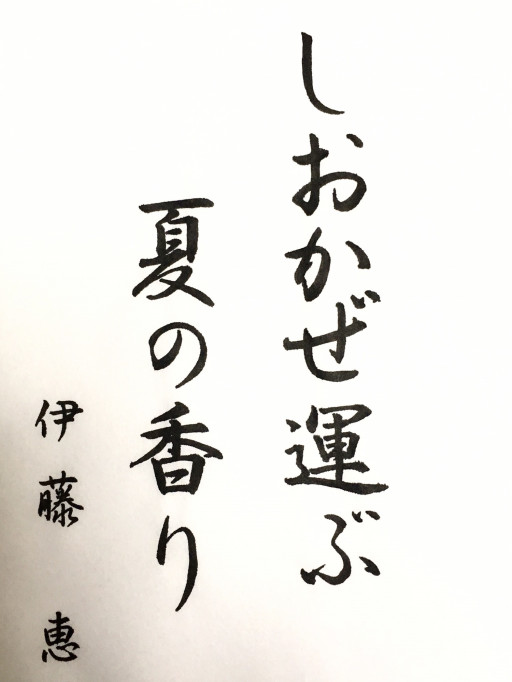 しおかぜ運ぶ
夏の香り
伊藤 恵